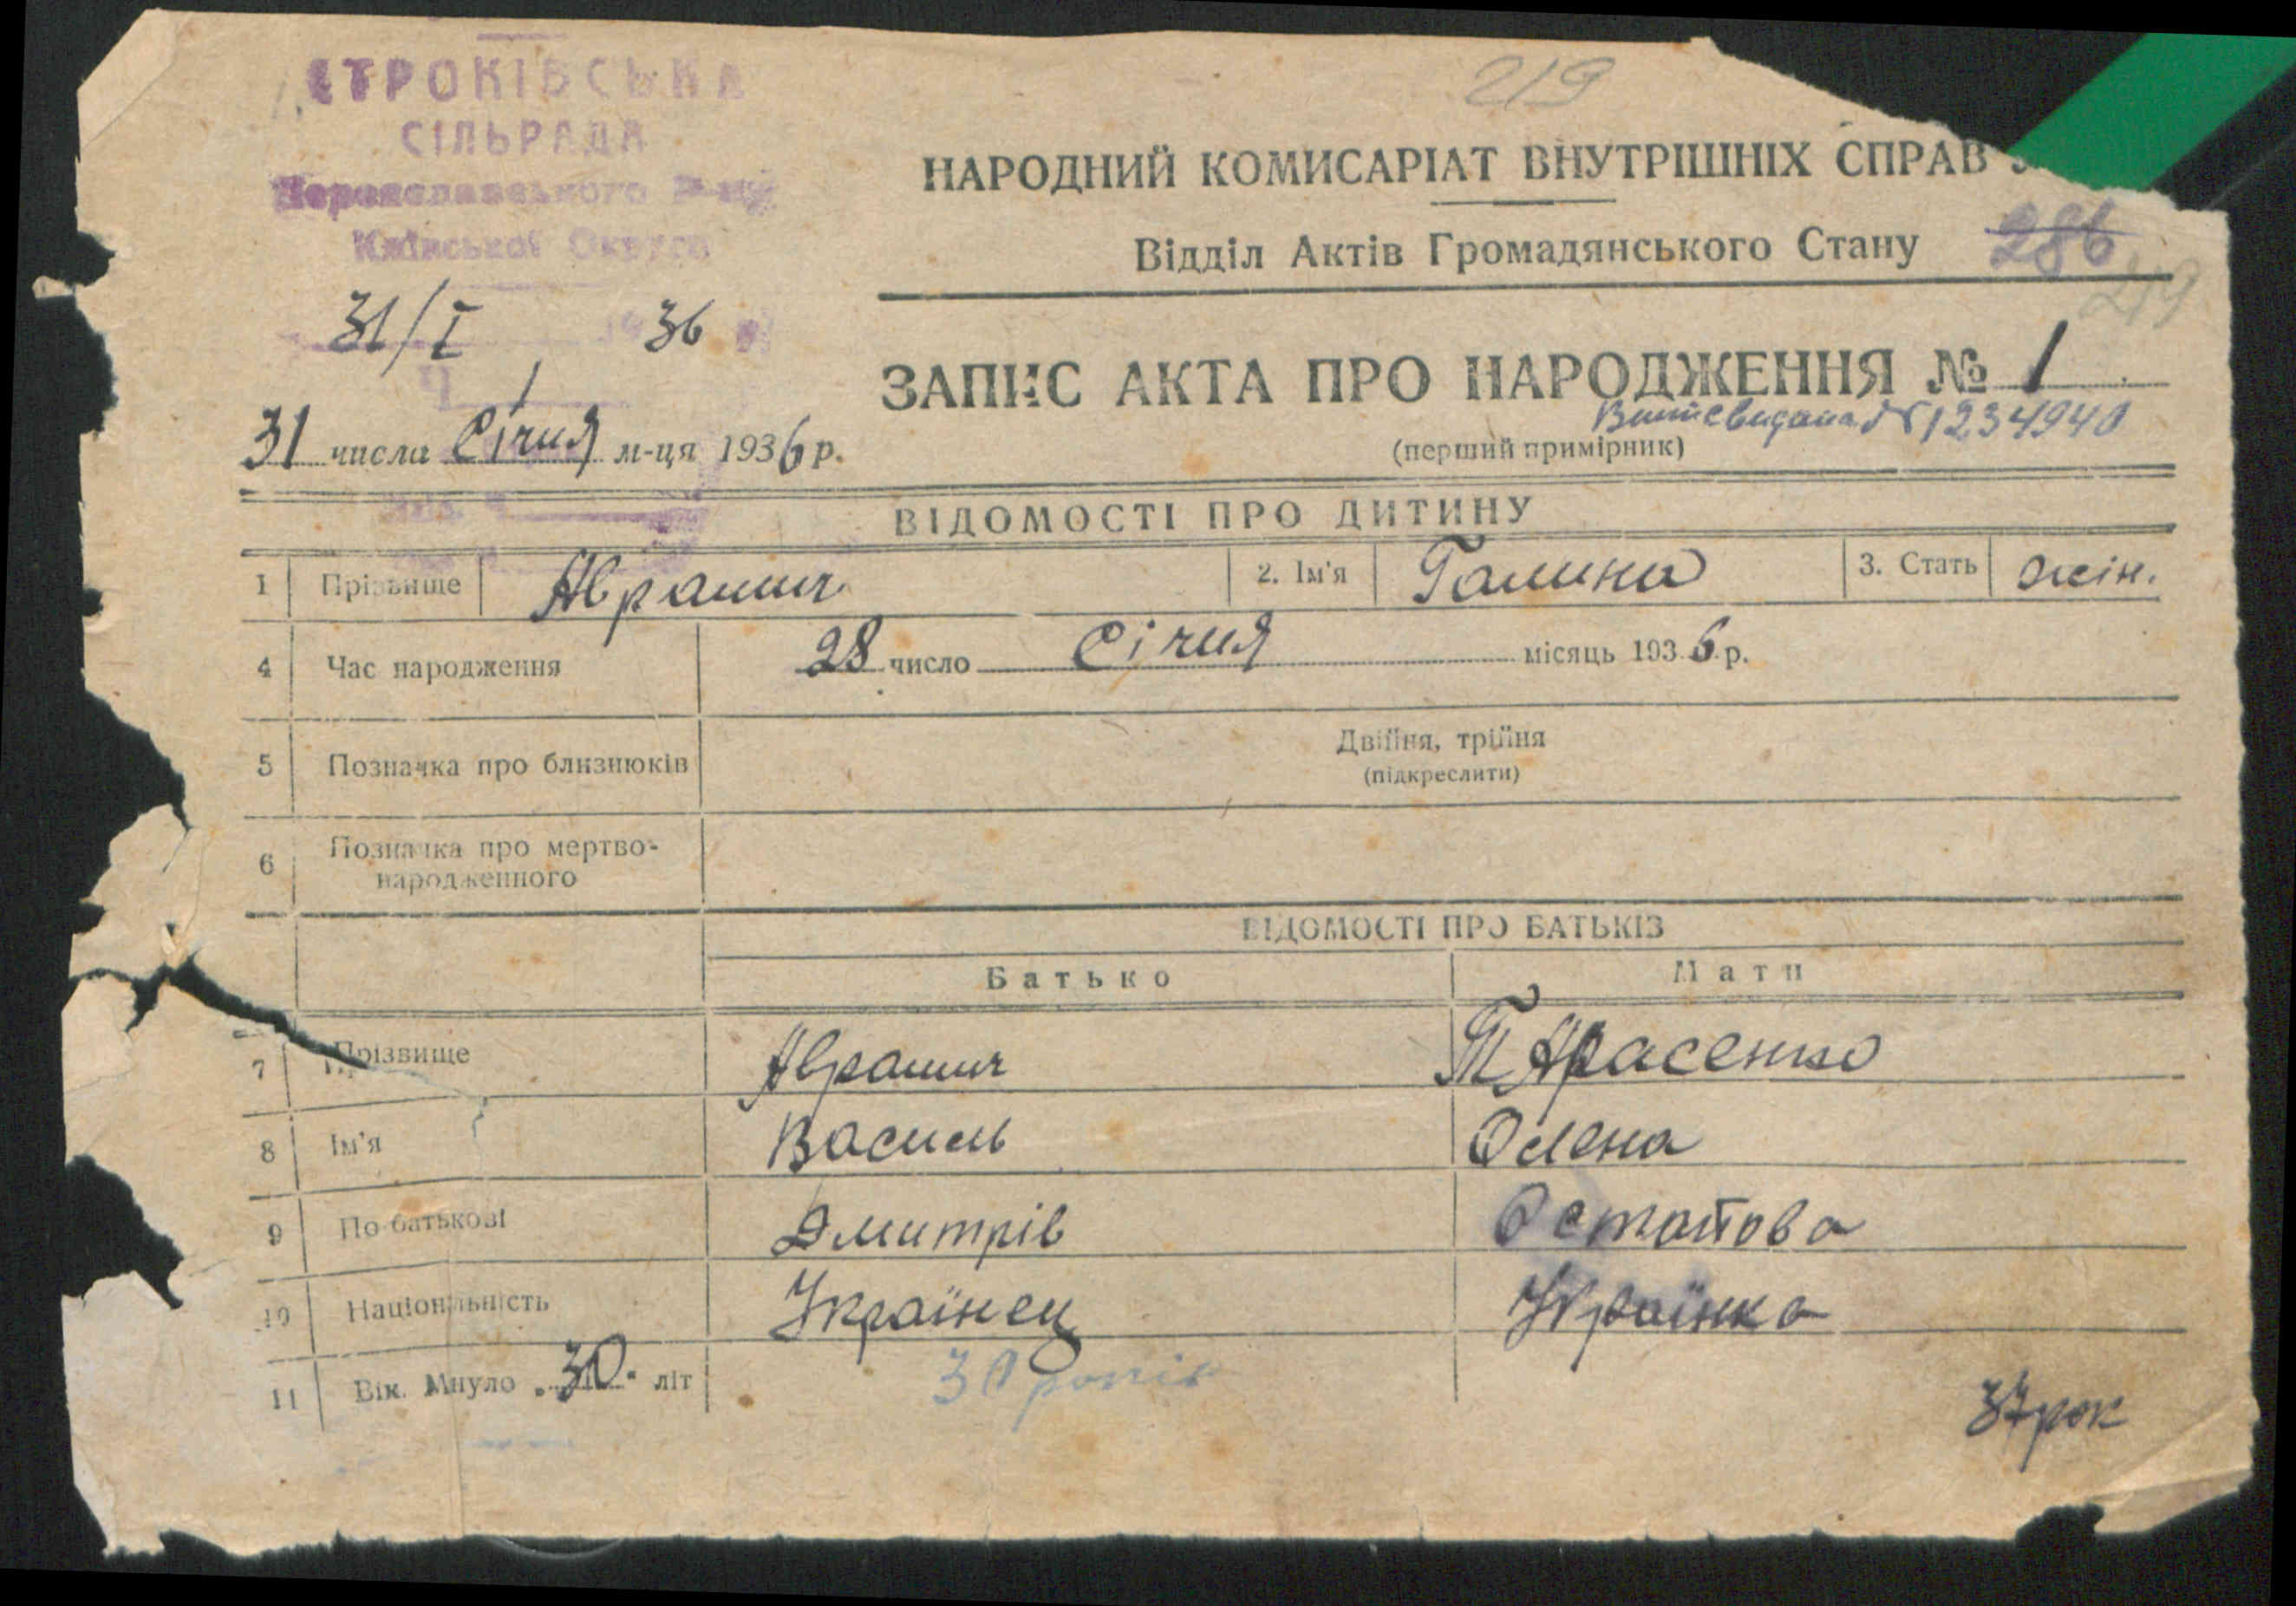 СТРОКІВСЬКА
СІЛЬРАДА
Переяславського Р-ну
Київської Округи
31/I 1936
Ч. 1
219
НАРОДНИЙ КОМИСАРІАТ ВНУТРІШНІХ СПРАВ
Відділ Актів Громадянського Стану
286
219
ЗАПИС АКТА ПРО НАРОДЖЕННЯ № 1
№ 1234940
(перший примірник)
31 числа Січня м-ця 1936 р.
ВІДОМОСТІ ПРО ДИТИНУ
1 Прізвище Аврамич 2. Ім'я Галина 3. Стать жін.
4 Час народження 28 число Січня місяць 1936 р.
5 Позначка про близнюків Двійня, трійня
(підкреслити)
6 Позначка про мертво-
народженного
ВІДОМОСТІ ПРО БАТЬКІВ
Батько Мати
7 Прізвище Аврамич Тарасенко
8 Ім'я Василь Олена
9 По батькові Дмитрів Остапова
10 Національність Українец Українка
11 Вік. Минуло 30 літ 30 років 37 рок